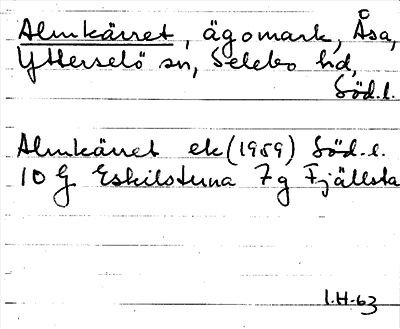 Almkärret, ägomark, Åsa,
Ytterselö sn, Selebo hd,
Söd.l.
Almkärret ek(1959) Söd.l.
10 G Eskilstuna 7g Fjällsta
I.H-63